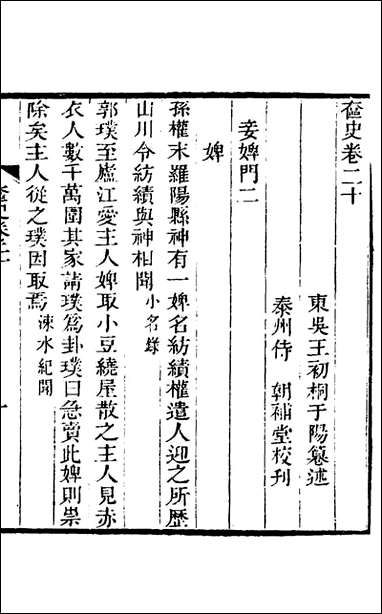 奩史卷二十
東吳王初桐于陽纂述
泰州侍　朝補堂校刊
妾婢門二
婢
孫權末羅陽縣神有一婢名紡績權遣人迎之所歷
山川令紡績與神相聞小名錄
郭璞至廬江愛主人婢取小豆繞屋散之主人見赤
衣人數千萬圍其家請璞爲卦璞曰急賣此婢則祟
除矣主人從之璞因取焉涑水紀聞